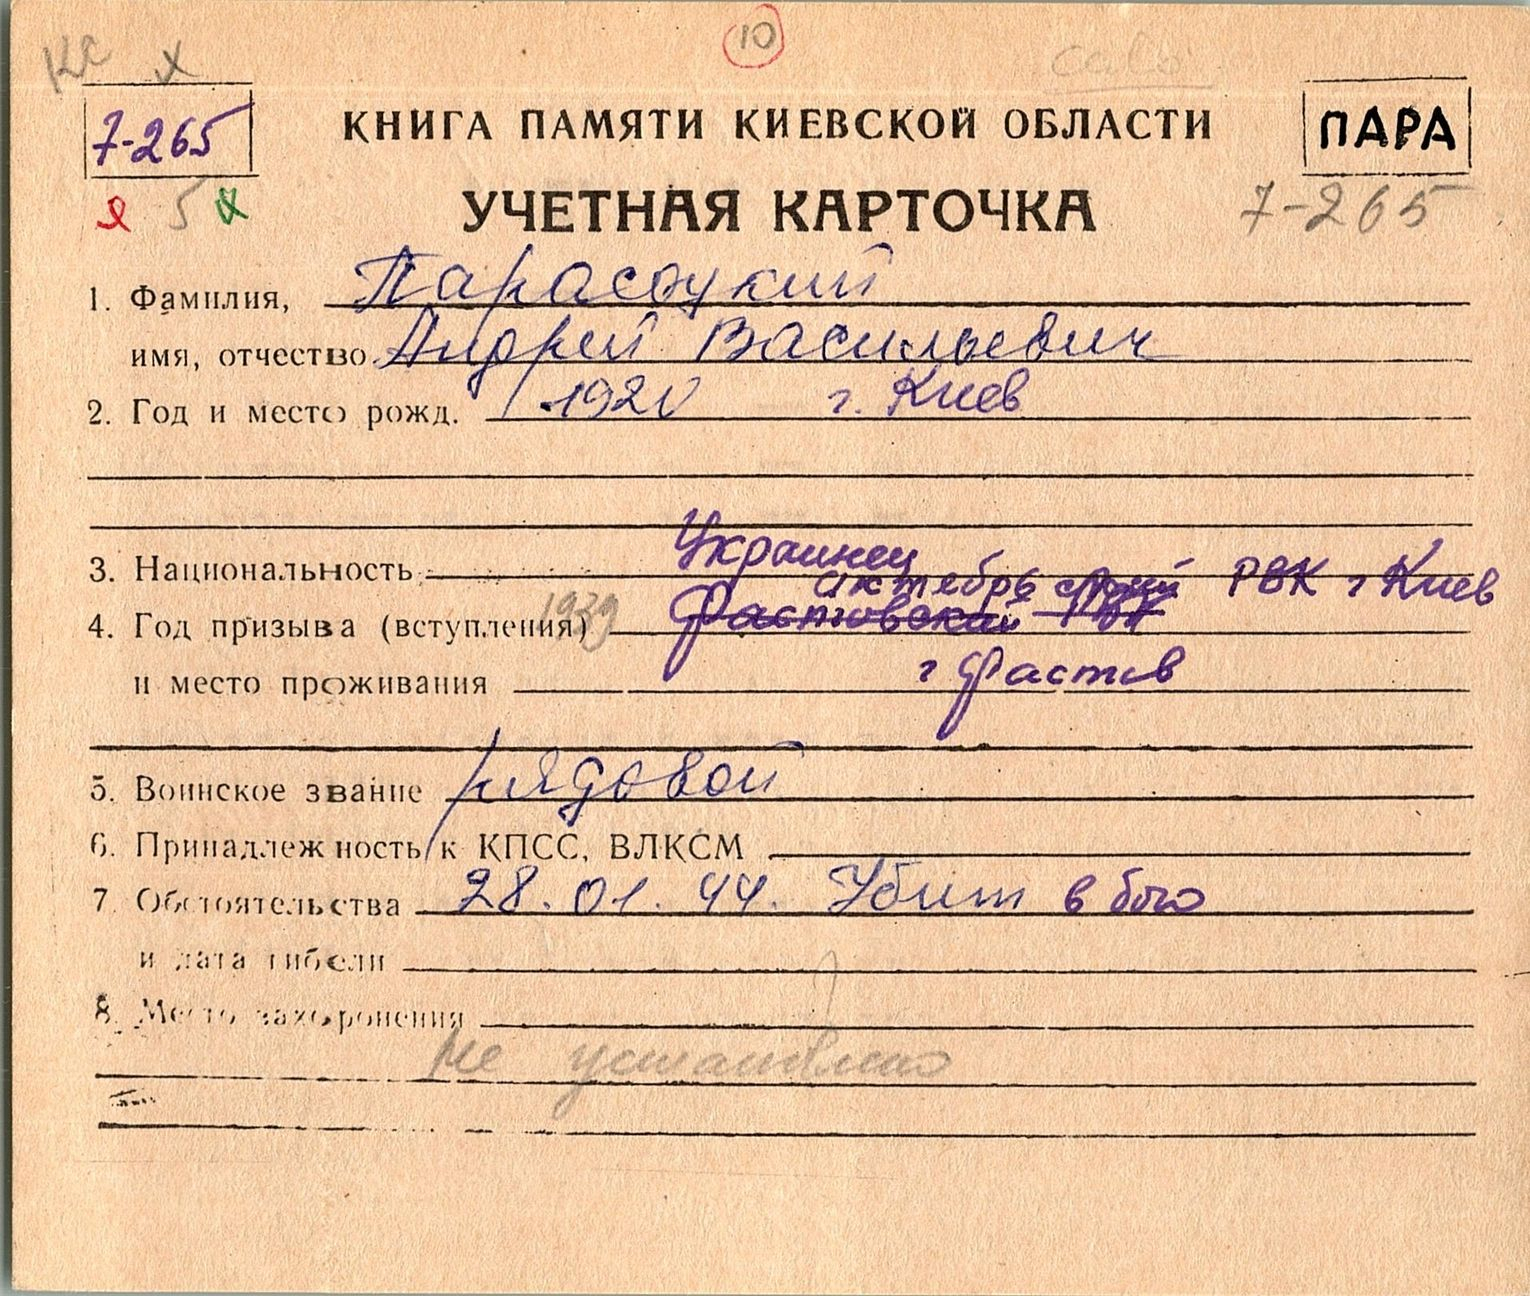 КС х
10
7-265
КНИГА ПАМЯТИ КИЕВСКОЙ ОБЛАСТИ
ПАРА
5
УЧЕТНАЯ КАРТОЧКА
7-265
1. Фамилия, Парасоцкий
имя, отчество Андрей Васильевич
2. Год и место рожд. 1920 г. Киев
3. Национальность Украинец
актябрьский РВК г Киев
4. Год призыва (вступления) 1939 Фастовский РВК
и место проживания г Фастов
5. Воинское звание рядовой
6. Принадлежность к КПСС, ВЛКСМ
7. Обстоятельства 28.01.44. Убит в бою
и дата гибели
8. Место захоронения
Не установлено